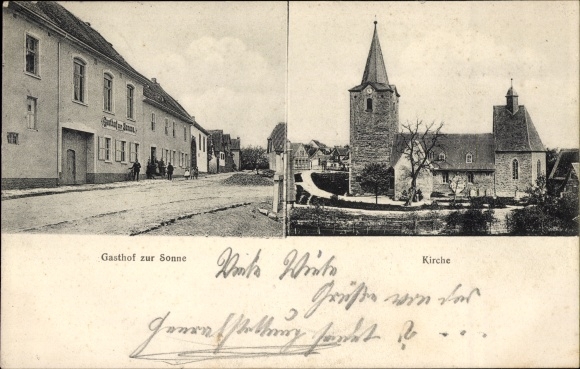 Gasthof zur Sonne
Gasthof zur Sonne
Kirche
Viele
Grüße von der
sendet ? . . .